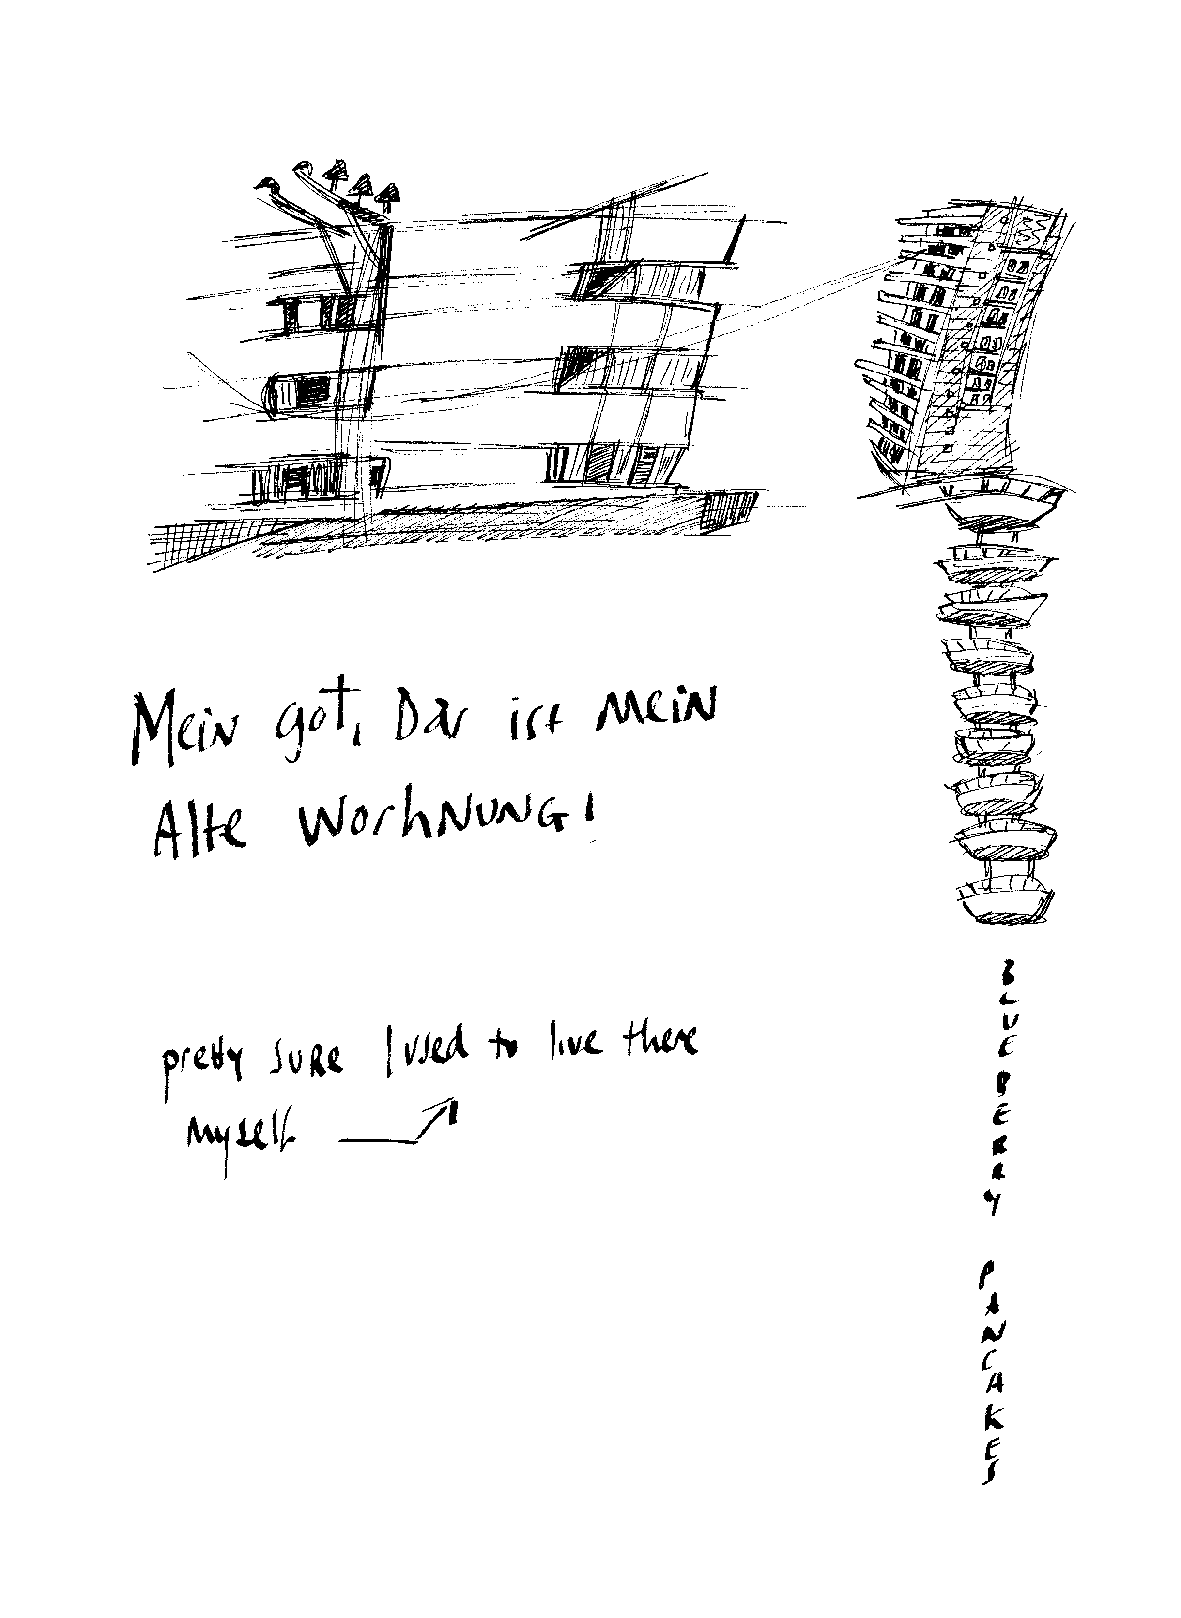 Mein got, Das ist mein
Alte WohrhNUNG!
pretty sure I used to live there
myself
BLUEBERRY PANCAKES